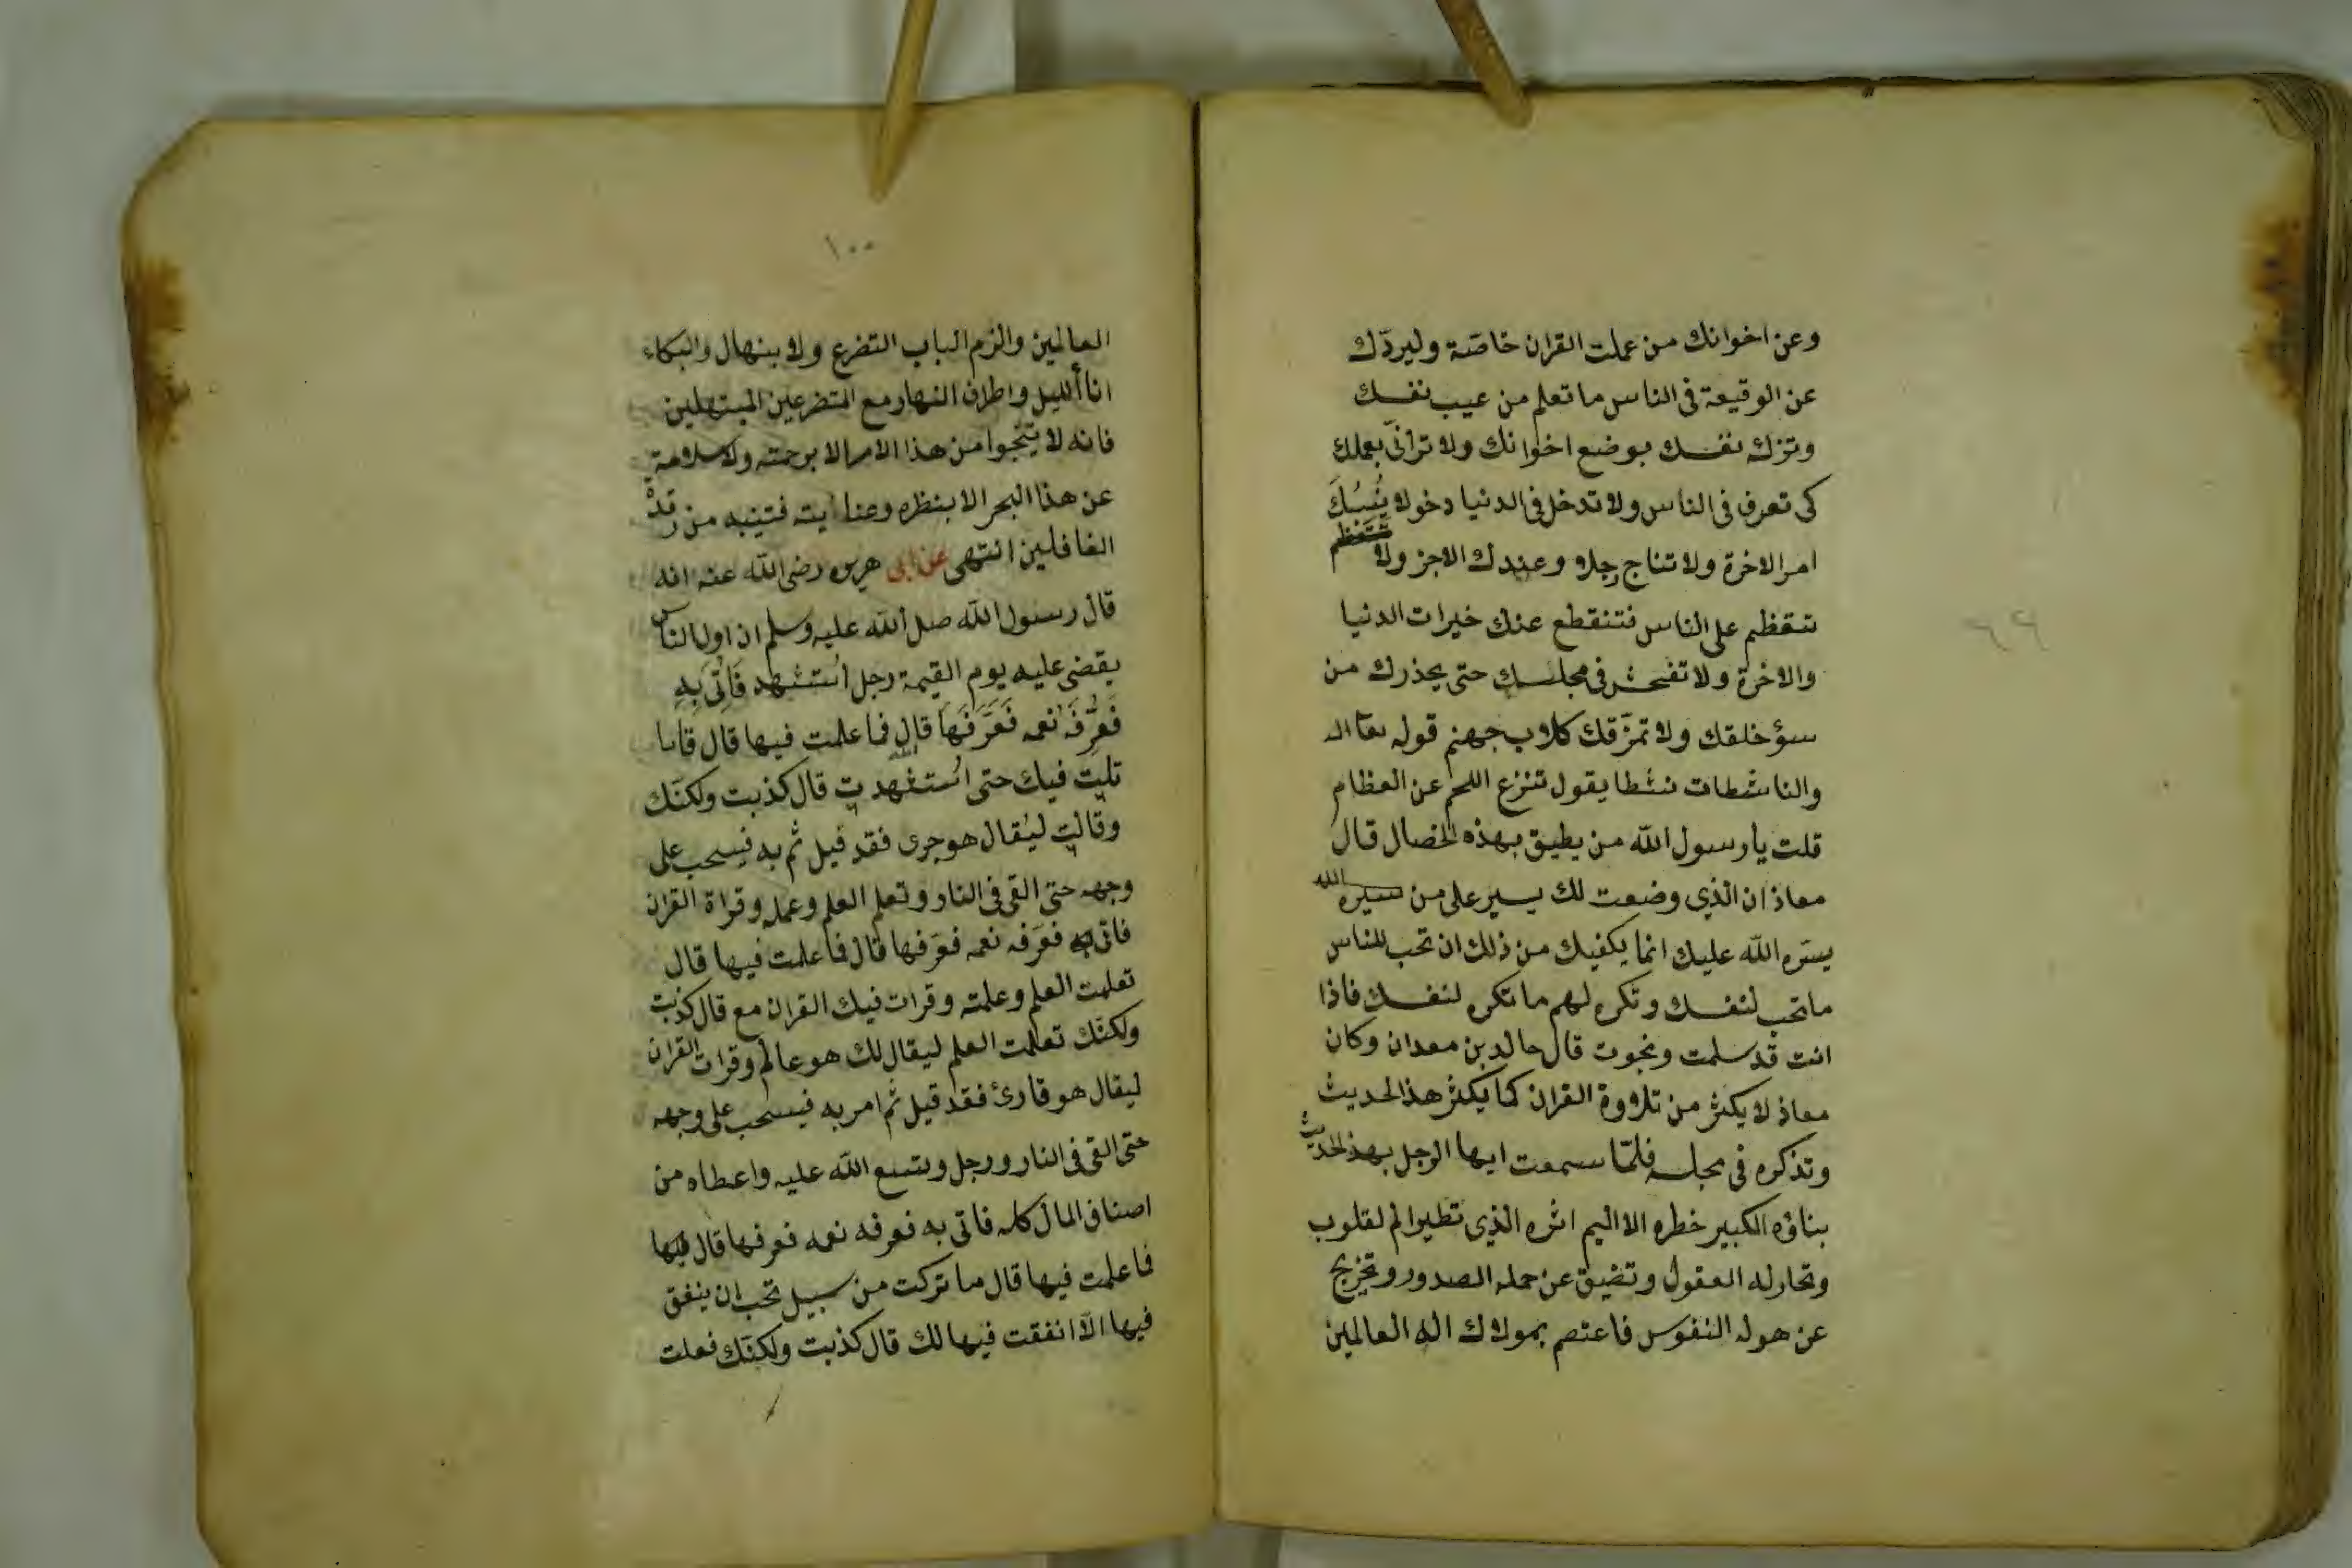 وعن اخوانك من عملت القران خاصّة وليردّك
عن الوقيعة فى الناس ما تعلم من عيب نفسك
وتزك نفسك بوضع اخوانك ولا ترائى بعملك
كى تعرف فى الناس ولا تدخل فى الدنيا دخولا يُنسِك
امر الاخرة ولا تناج رجلا وعندك الاخر ولا
تتعظم على الناس فتنقطع عنك خيرات الدنيا
والاخرة ولا تفحش فى مجلسك حتى يحذرك من
سؤ خلقك ولا تمزّقك كلاب جهنم قوله تعالى
والناشطات نشطا يقول تنزع اللحم عن العظام
قلت يا رسول الله من يطيق بهذه الخصال قال
معاذ ان الذي وضعت لك يسير على من
يسّره الله عليك انما يكفيك من ذلك ان تحب للناس
ما تحب لنفسك وتكره لهم ما تكره لنفسك فاذا
انت قد سلمت ونجوت قال خالد بن معدان وكان
معاذ لا يكثر من تلاوة القران كما يكثر هذ الحديث
وتذكره فى مجلسه فلمّا سمعت ايها الرجل بهذ الحديث
بناؤه الكبير خطره الاليم اثره الذي تطير الم لقلوب
وتحارله العقول وتضيق عن حمله الصدور وتخرج
عن هوله النفوس فاعتصم بمولاك اله العالمين
٩٩
١٠٠
العالمين والزم الباب التضرع ولابنهال والبكاء
انا ألليل واطراف النهار مع المتضرعين المبتهلين
فانه لا تنجوا من هذا الامر الا برحمته ولا سلامة
عن هذا البحر الا بنظره وعنايته فتنبه من رقدة
الغافلين انتهى عن ابى هريره رضى الله عنه انه
قال رسول الله صلى الله عليه وسلم ان اول الناس
يقضى عليه يوم القيمة رجل اُستشهد فَاُتِىَ بِهِ
فَعَرَّفَه نعمه فَعَرَّفَهَا قال فما عملت فيها قال قا
تلت فيك حتى اُستشهدت قال كذبت ولكنّك
وقالت ليُقال هو جرى فقد قيل ثم به فيسحب على
وجهه حتى القى فى النار وتعلم العلم وعمله وقراة القران
فاتى به فعرّفه نعمه فعرفها قال فما عملت فيها قال
تعلمت العلم وعلمته وقرات فيك القران مع قال كذبت
ولكنّك تعلمت العلم ليقال لك هو عالم وقرات القران
ليقال هو قارئ فقد قيل ثم امر به فيسحب على وجهه
حتى القى فى النار ورجل وسع الله عليه واعطاه من
اصناف المال كله فاتى به فعرفه نعمه فعرفها قال فيها
فما عملت فيها قال ما تركت من سبيل تحب ان ينفق
فيها الّا انفقت فيها لك قال كذبت ولكنّك فعلت